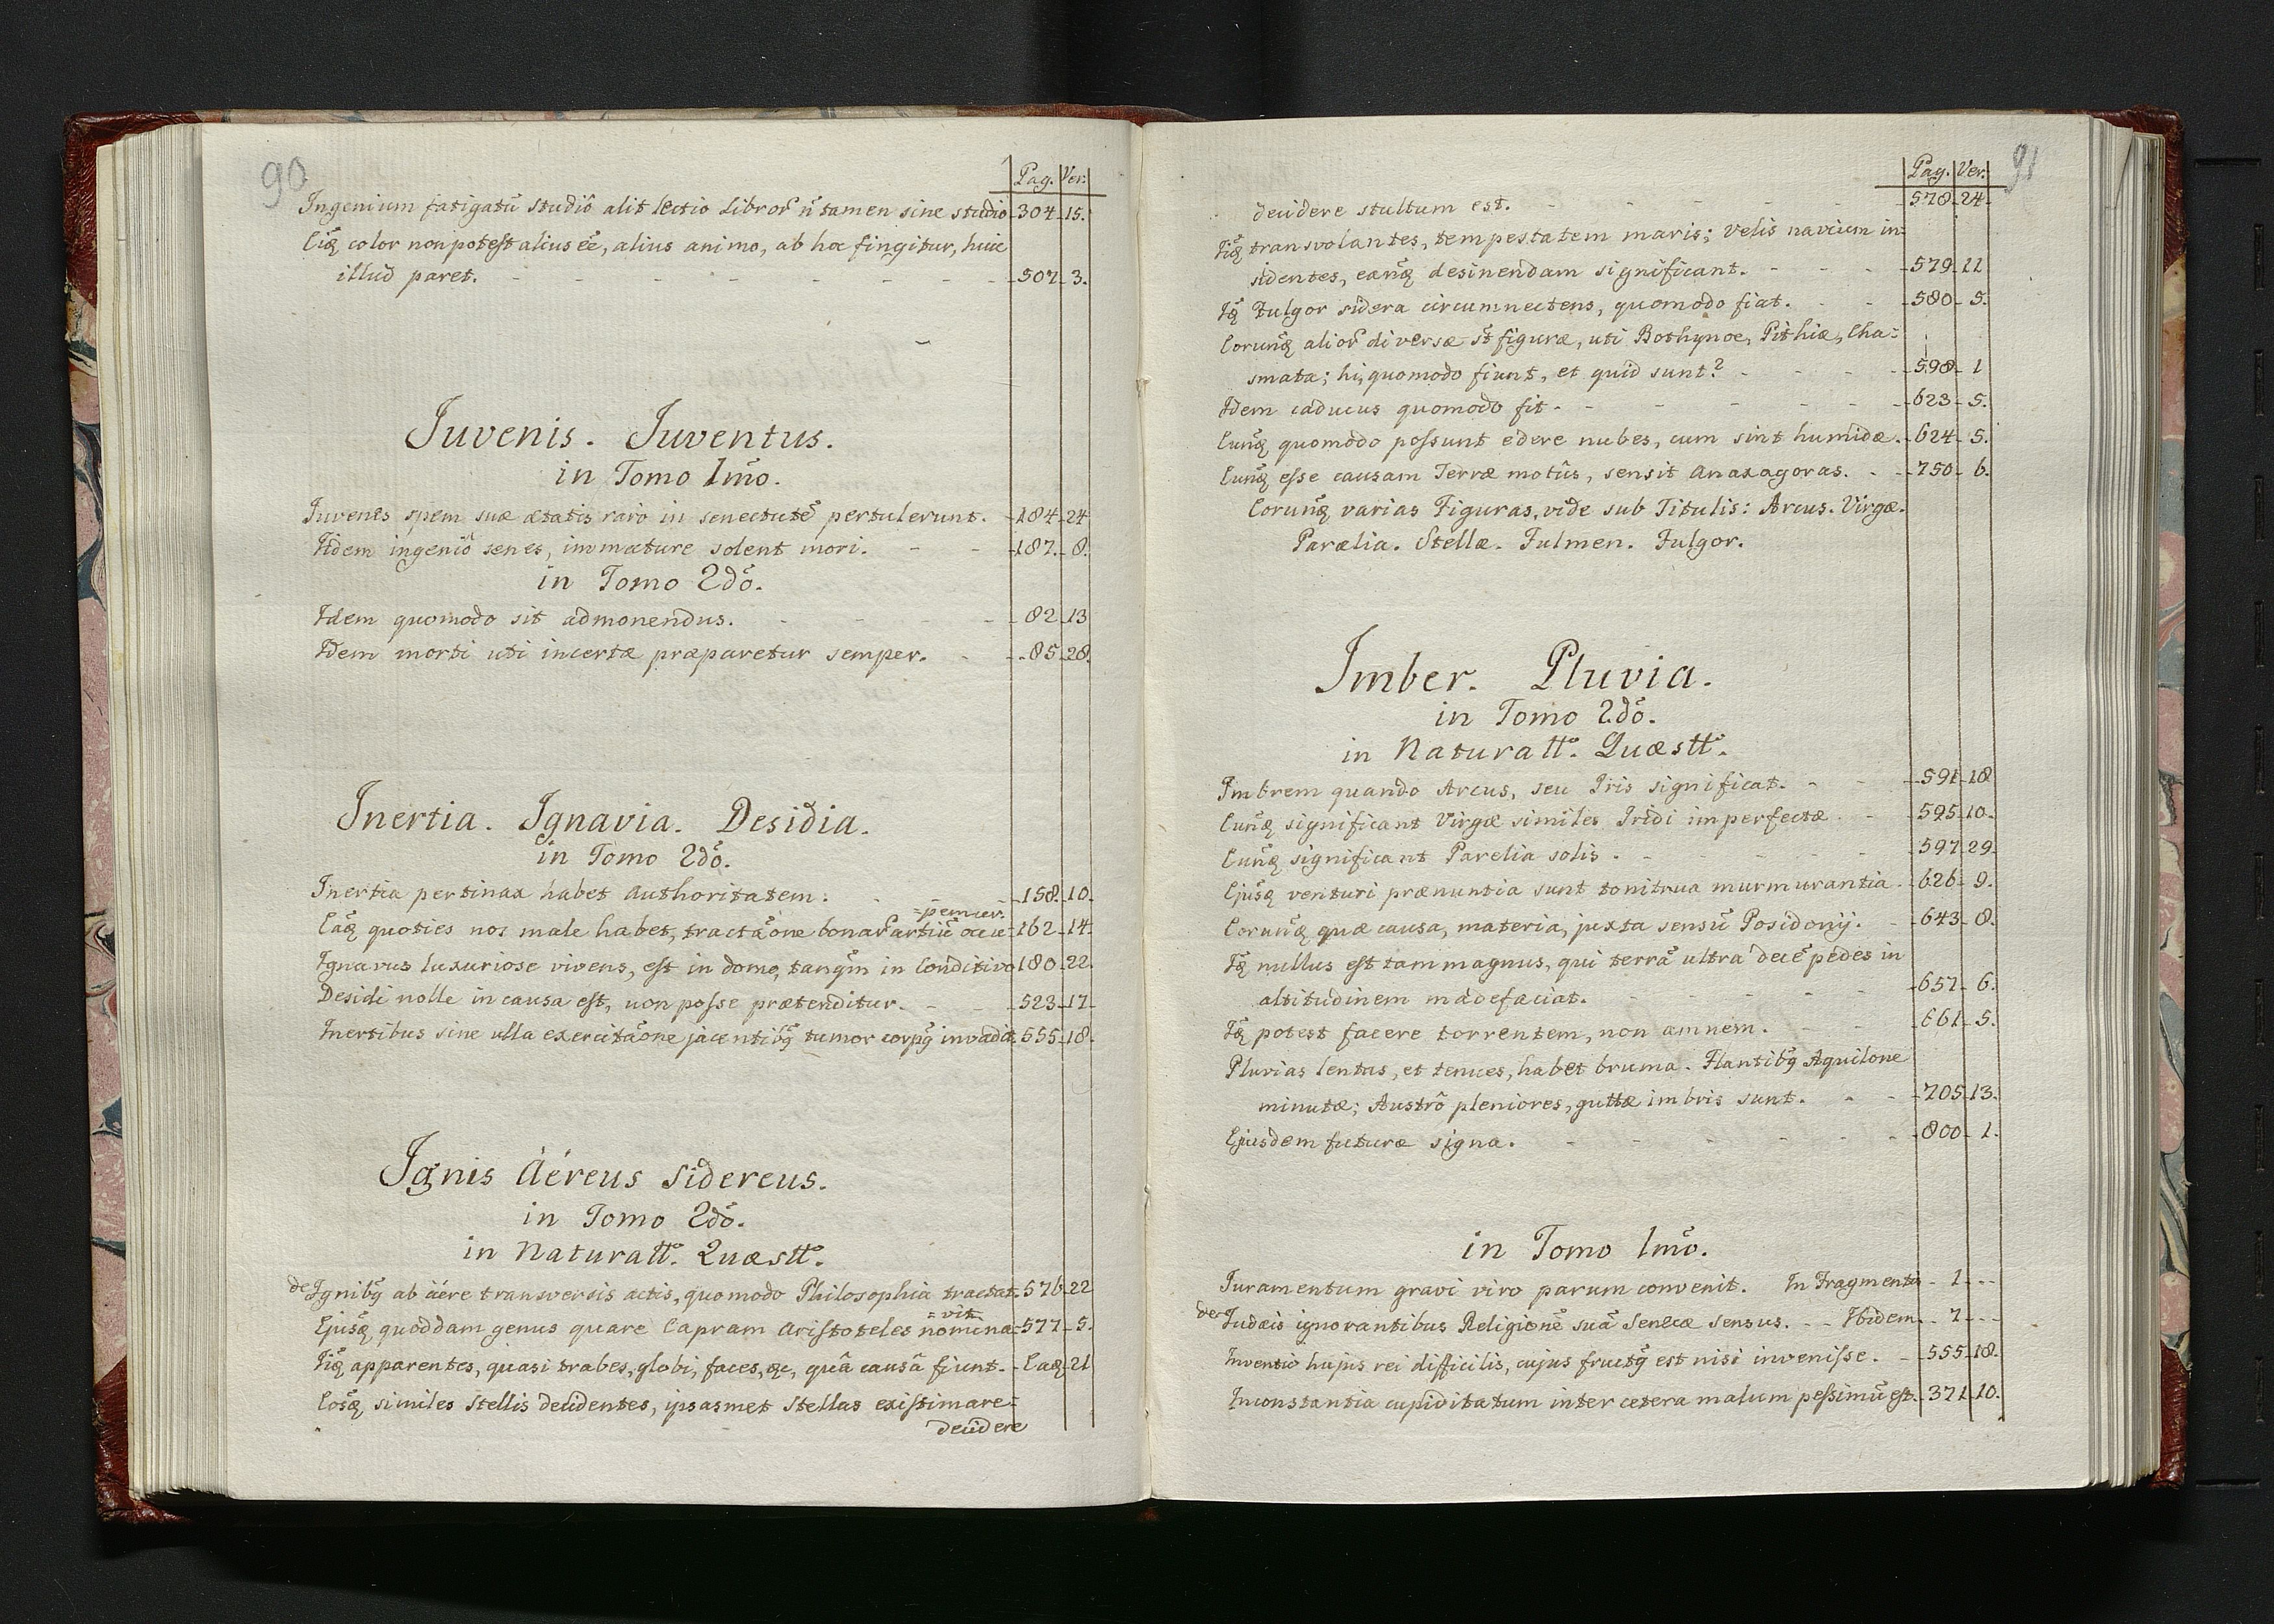 90
Pag. Ver.
Ingenium fatigatũ studiô alit lectio Libror̃ ñ tamen sine studio 304 15.
Ei᷒q color non potest alius eẽ, alius animo, ab hoc fingitur, huic
illud paret. 507 3.
Juvenis. Juventus.
in Tomo 1mõ.
Juvenes spem suæ ætatis raro in senectutẽ pertulerunt. 184 24
Iidem ingeniô senes, immature solent mori. 187. 8.
in Tomo 2dõ.
Idem quomodo sit admonendus. 82 13
Idem morti uti incertæ præparetur semper. 85 28.
Inertia. Ignavia. Desidia.
in Tomo 2dõ.
Inertia pertinax habet authoritatem. 158. 10.
=pemur.
Eãq quoties nos male habet, tractãone bonar̃ artiũ occu= 162 14
Ignavus luxuriose vivens, est in domo, tanq̃m in Conditivo 180 22.
Desidi nolle in causa est, non posse prætenditur. 523 17
Inertibus sine ulla exercitãone jacentibq̃ tumor corpq̃ invadit. 555 18.
Ignis Aéreus Sidereus.
in Tomo 2dõ.
in Naturall. Quæstt.
de Ignibq̃ ab äére transversis actis, quomodo Philosophia tractat. 576 22
=vit
Ejusq̃ quoddam genus quare Capram Aristoteles nomina= 577 5.
Iiq̃ apparentes, quasi trabes, globi, faces, &c, quâ causâ fiunt. Eaq̃ 21
Eosq̃ similes Stellis decidentes, ipsasmet Stellas existimare=
decidere
91
Pag. Ver.
decidere stultum est. 578 24
Iiq̃ transvolantes, tempestatem maris; velis navium in=
sidentes, eanq̃ desinendam significant. 579 11
Iq̃ Fulgor sidera circumnectens, quomodo fiat. 580 5.
Eorunq̃ alior̃ diversæ st̃ figuræ, uti Bothynoe, Pithiæ, Cha=
smata; hi, quomodo fiunt, et quid sunt? 598 1
Idem caducus quomodo fit. 623 5.
Eunq̃ quomodo possunt edere nubes, cum sint humidæ. 624 5.
Eunq̃ esse causam Terræ motûs, sensit Anaxagoras. 750 6.
Eorunq̃ varias Figuras, vide sub Titulis: Arcus. Virgæ.
Parælia. Stellæ. Fulmen. Fulgor.
Imber. Pluvia.
in Tomo 2dõ.
in Naturall. Quæstt.
Imbrem quando Arcus, seu Iris significat. 591 18
Eunq̃ significant Virgæ similes Iridi imperfectæ. 595 10.
Eunq̃ significant Parelia solis. 597 29.
Ejusq̃ venturi prænuntia sunt tonitrua murmurantia. 626 9.
Eorunq̃ quæ causa, materia, juxta sensũ Posidonij. 643 8.
Iq̃ nullus est tam magnus, qui terrã ultra decẽ pedes in
altitudinem madefaciat. 657 6.
Iq̃ potest facere torrentem, non amnem. 661 5.
Pluvias lentas, et tenues, habet bruma. Flantibq̃ Aquilone
minutæ; Austrô pleniores, guttæ imbris sunt. 705 13.
Ejusdem futuræ signa. 800 1.
in Tomo 1mõ.
Juramentum gravi viro parum convenit. In Fragmenta 1 --
de Judæis ignorantibus Religionẽ suã Senecæ sensus. -- Ibidem. 7 --
Inventio hujus rei difficilis, cujus fructq̃ est nisi invenisse. 555 18.
Inconstantia cupiditatum inter cetera malum pessimũ est. 371 10.